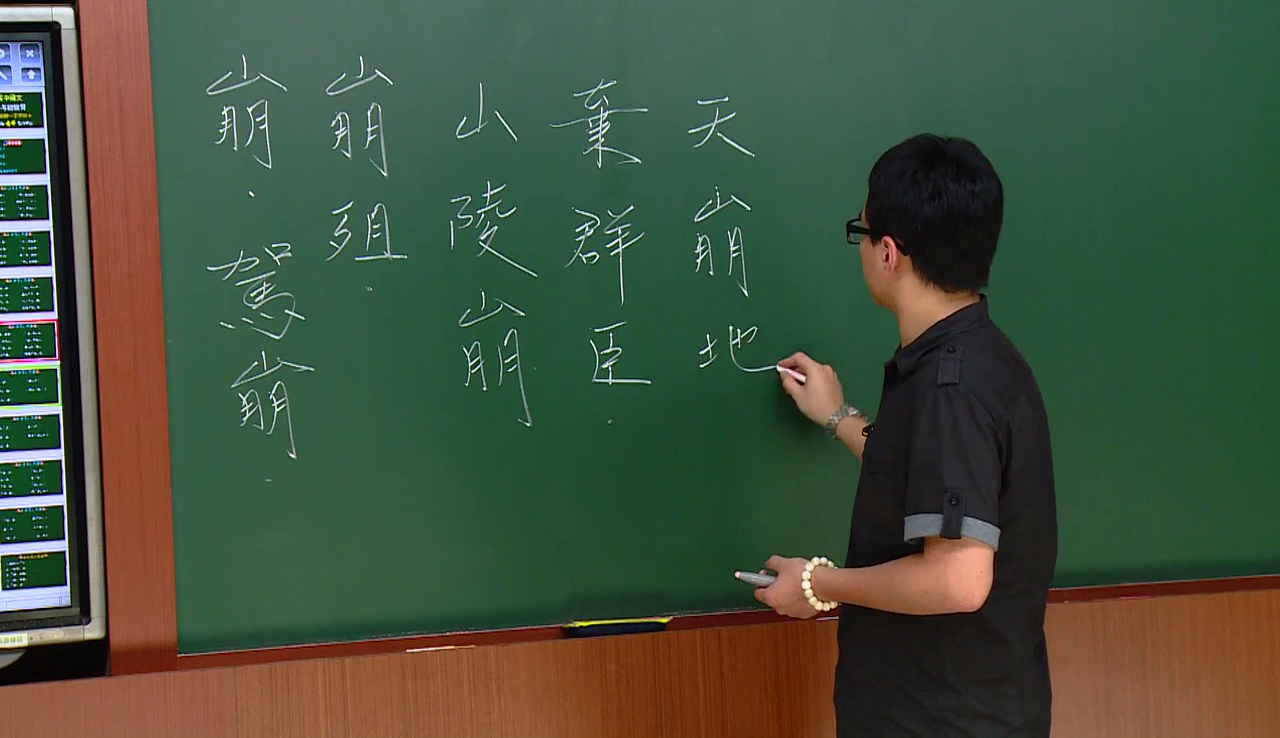 崩.駕崩.
崩殂.
山陵崩.
棄群臣.
天崩地